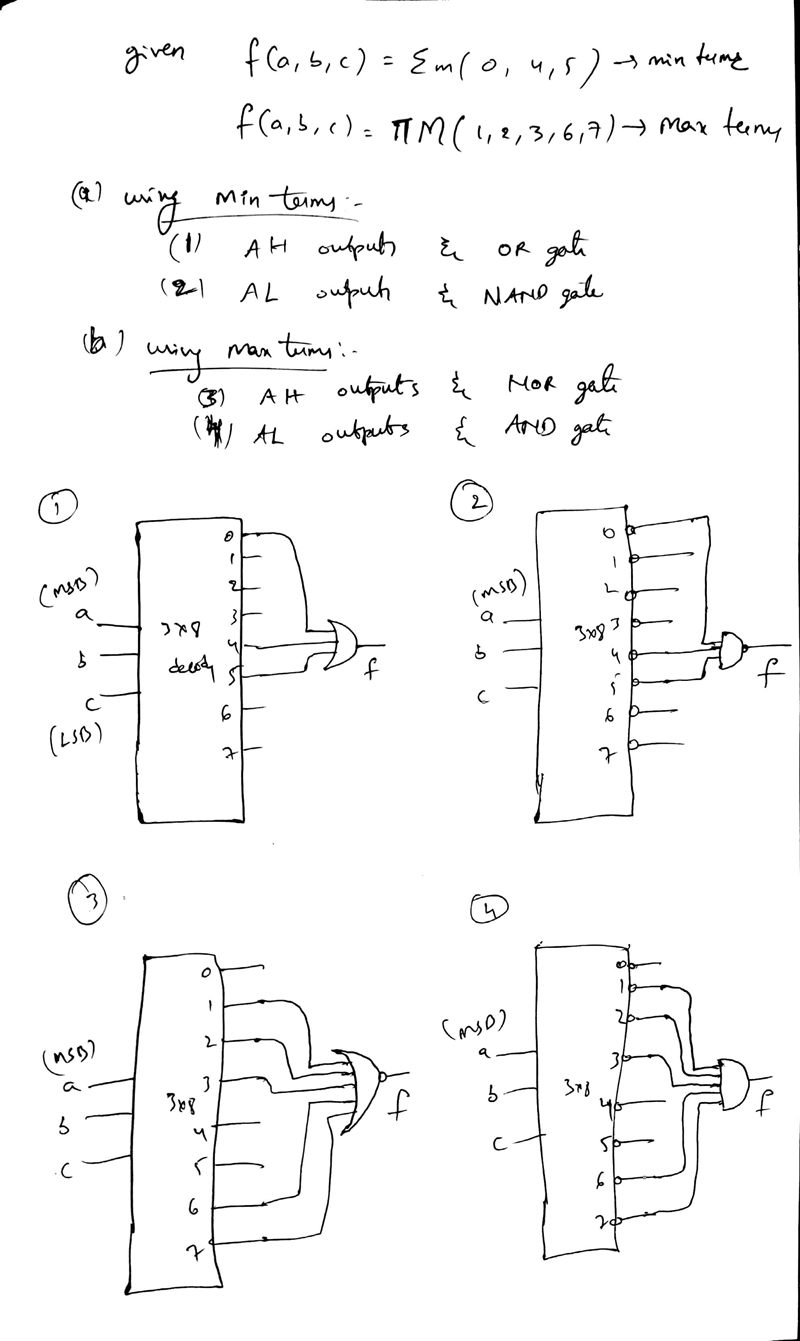 given f(a,b,c) = Σm(0, 4,5) → min terms
f(a,b,c) = πM(1,2,3,6,7) → Max terms
(a) using Min terms:-
(1) AH outputs & OR gate
(2) AL outputs & NAND gate
(b) using Max terms:-
(3) AH outputs & NOR gate
(4) AL outputs & AND gate
1
(MSB)
a
b
c
(LSB)
3x8
decody
0
1
2
3
4
5
6
7
f
2
(MSB)
a
b
c
3x8
0
1
2
3
4
5
6
7
f
3
(MSB)
a
b
c
3x8
0
1
2
3
4
5
6
7
f
4
(MSB)
a
b
c
3x8
0
1
2
3
4
5
6
7
f